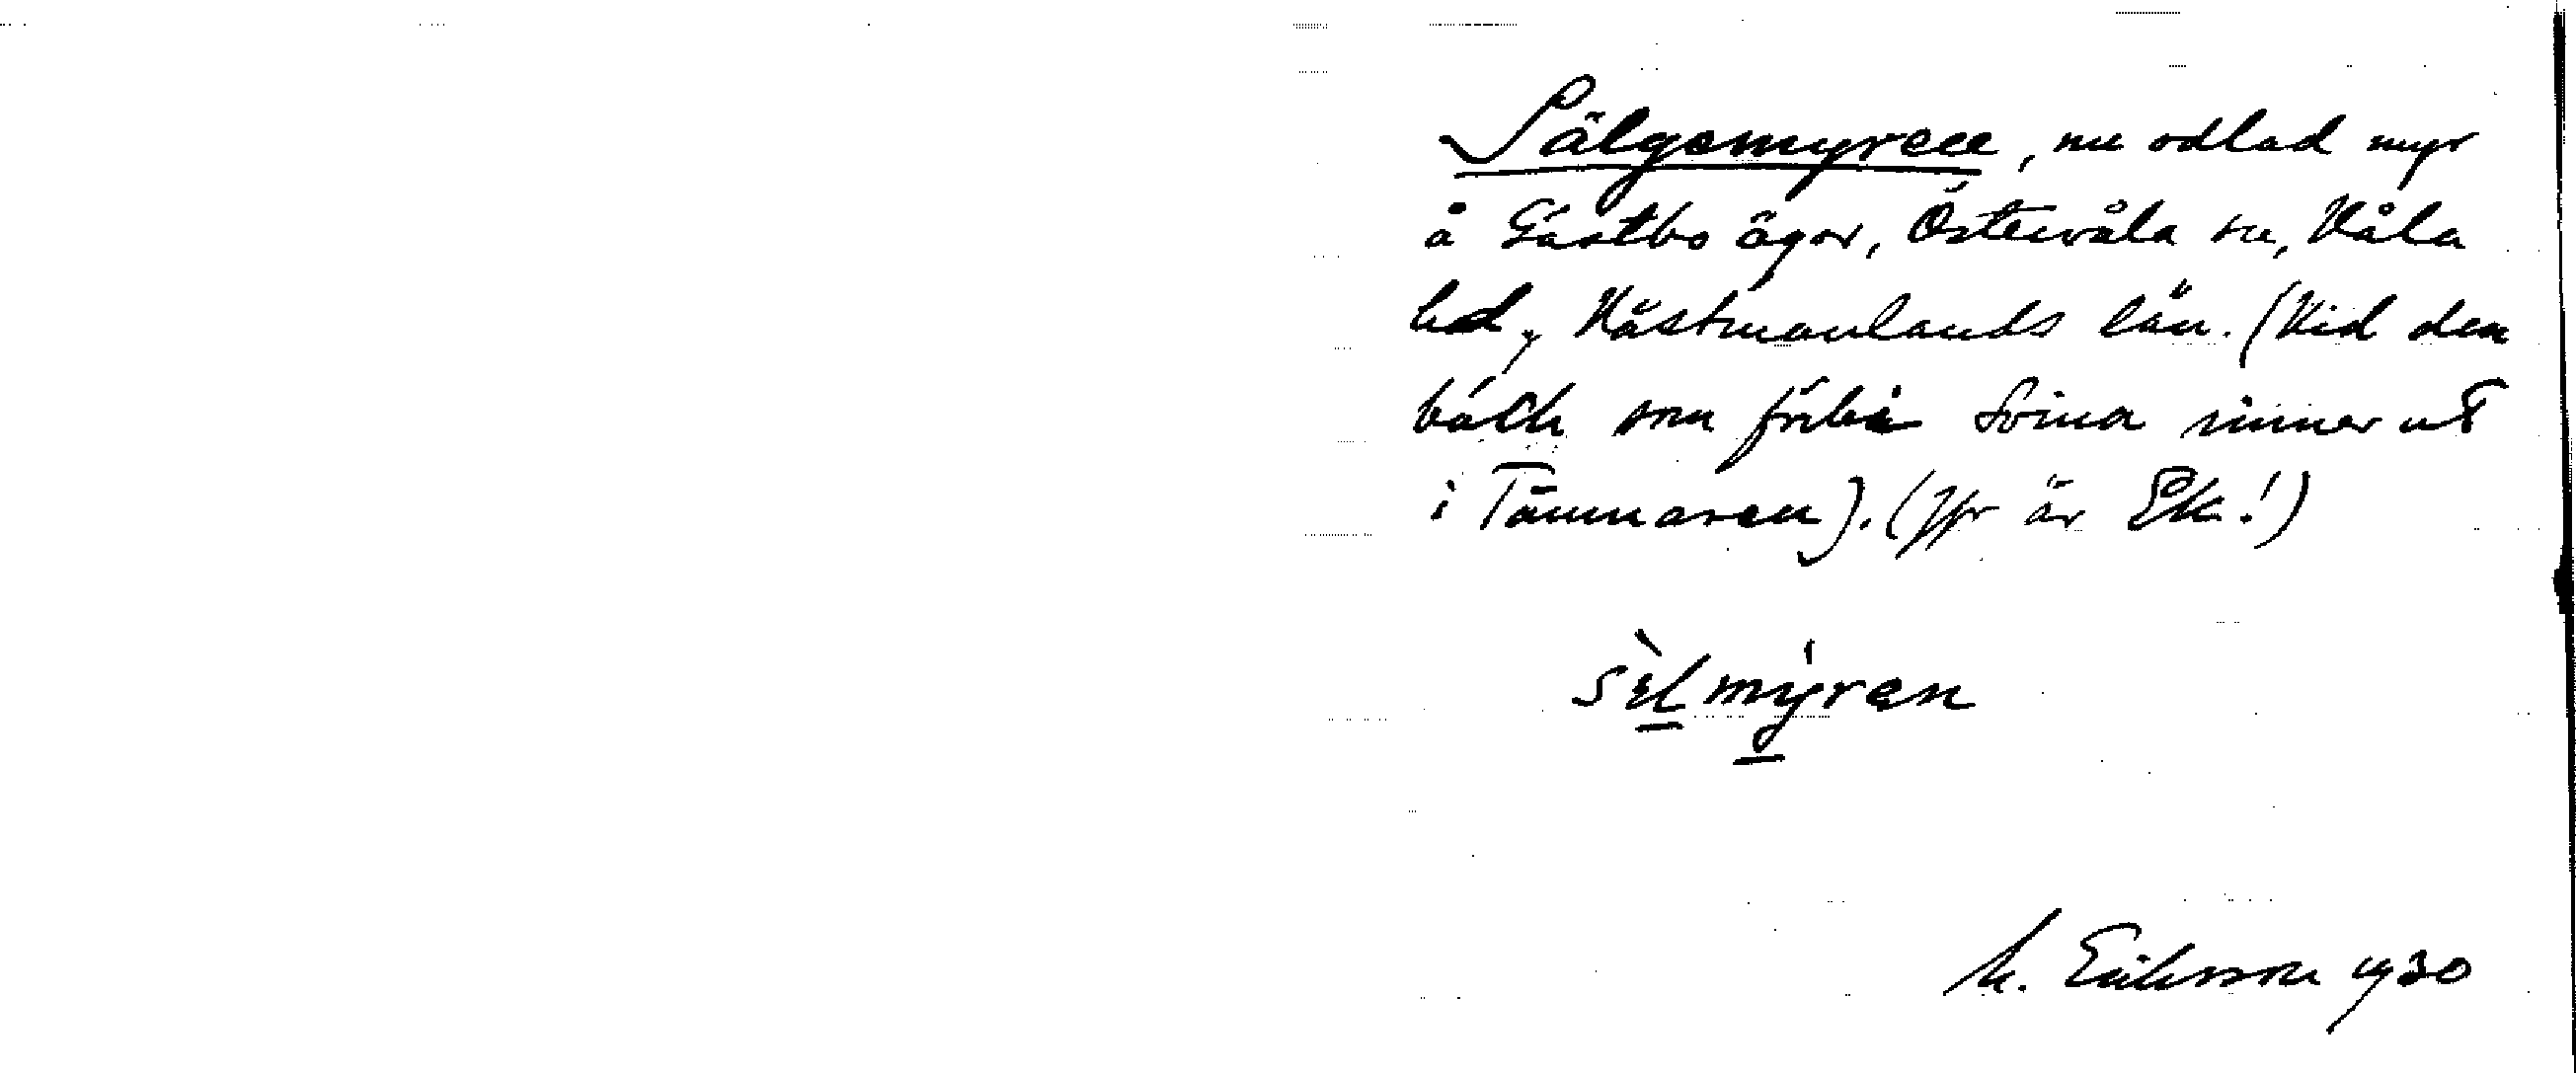 Sälgomyren, nu odlad myr
å Gästbo ägor, Östervåla sn, Våla
hd, Västmanlands län. (Vid den
bäck som förbi Svina rinner ut
i Tämnaren). (Jfr är Ek!)
sɛ̀lmýren
M. Eriksson 1930